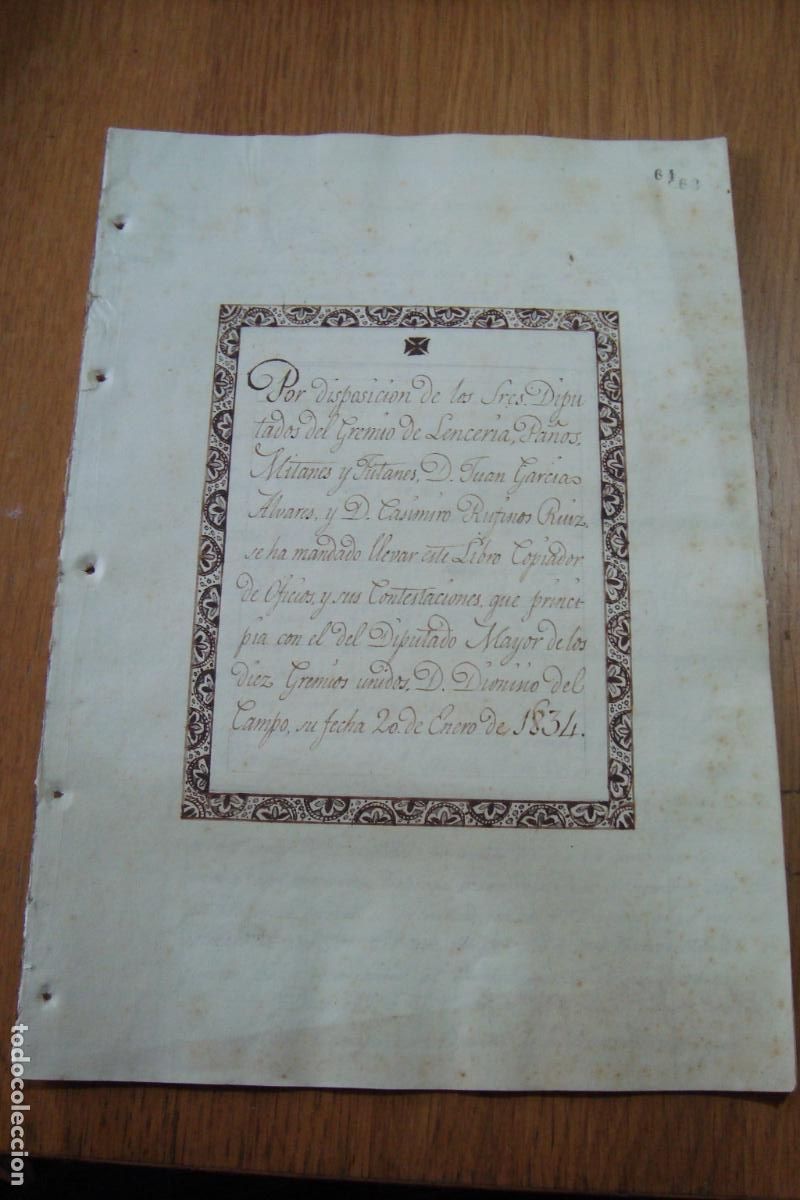 61
63
Por disposicion de los Sres. Dipu
tados del Gremio de Lenceria, Paños,
Mitanes y Futanes, D. Juan Garcia
Alvares, y D. Casimiro Rufinos Ruiz,
se ha mandado llevar este Libro Copiador
de Oficios, y sus Contestaciones, que princi-
pia con el del Diputado Mayor de los
diez Gremios unidos, D. Dionisio del
Campo, su fecha 20. de Enero de 1834.
todocoleccion
todocoleccion.net